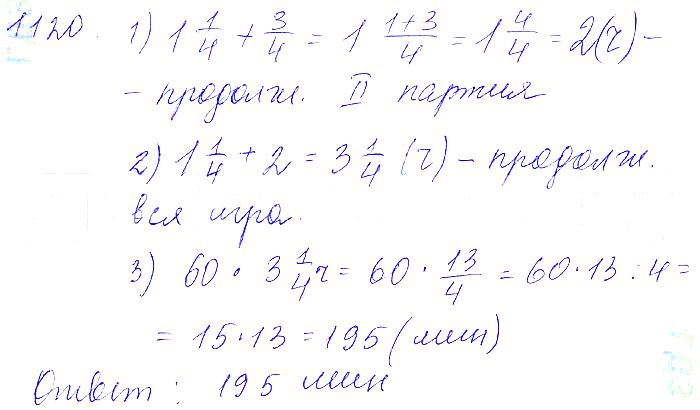 1120. 1) 1 1/4 + 3/4 = 1 (1+3)/4 = 1 4/4 = 2(ч) –
– продолж. II партия
2) 1 1/4 + 2 = 3 1/4 (ч) – продолж.
вся игра.
3) 60 · 3 1/4 ч = 60 · 13/4 = 60 · 13 : 4 =
= 15 · 13 = 195 (мин)
Ответ: 195 мин